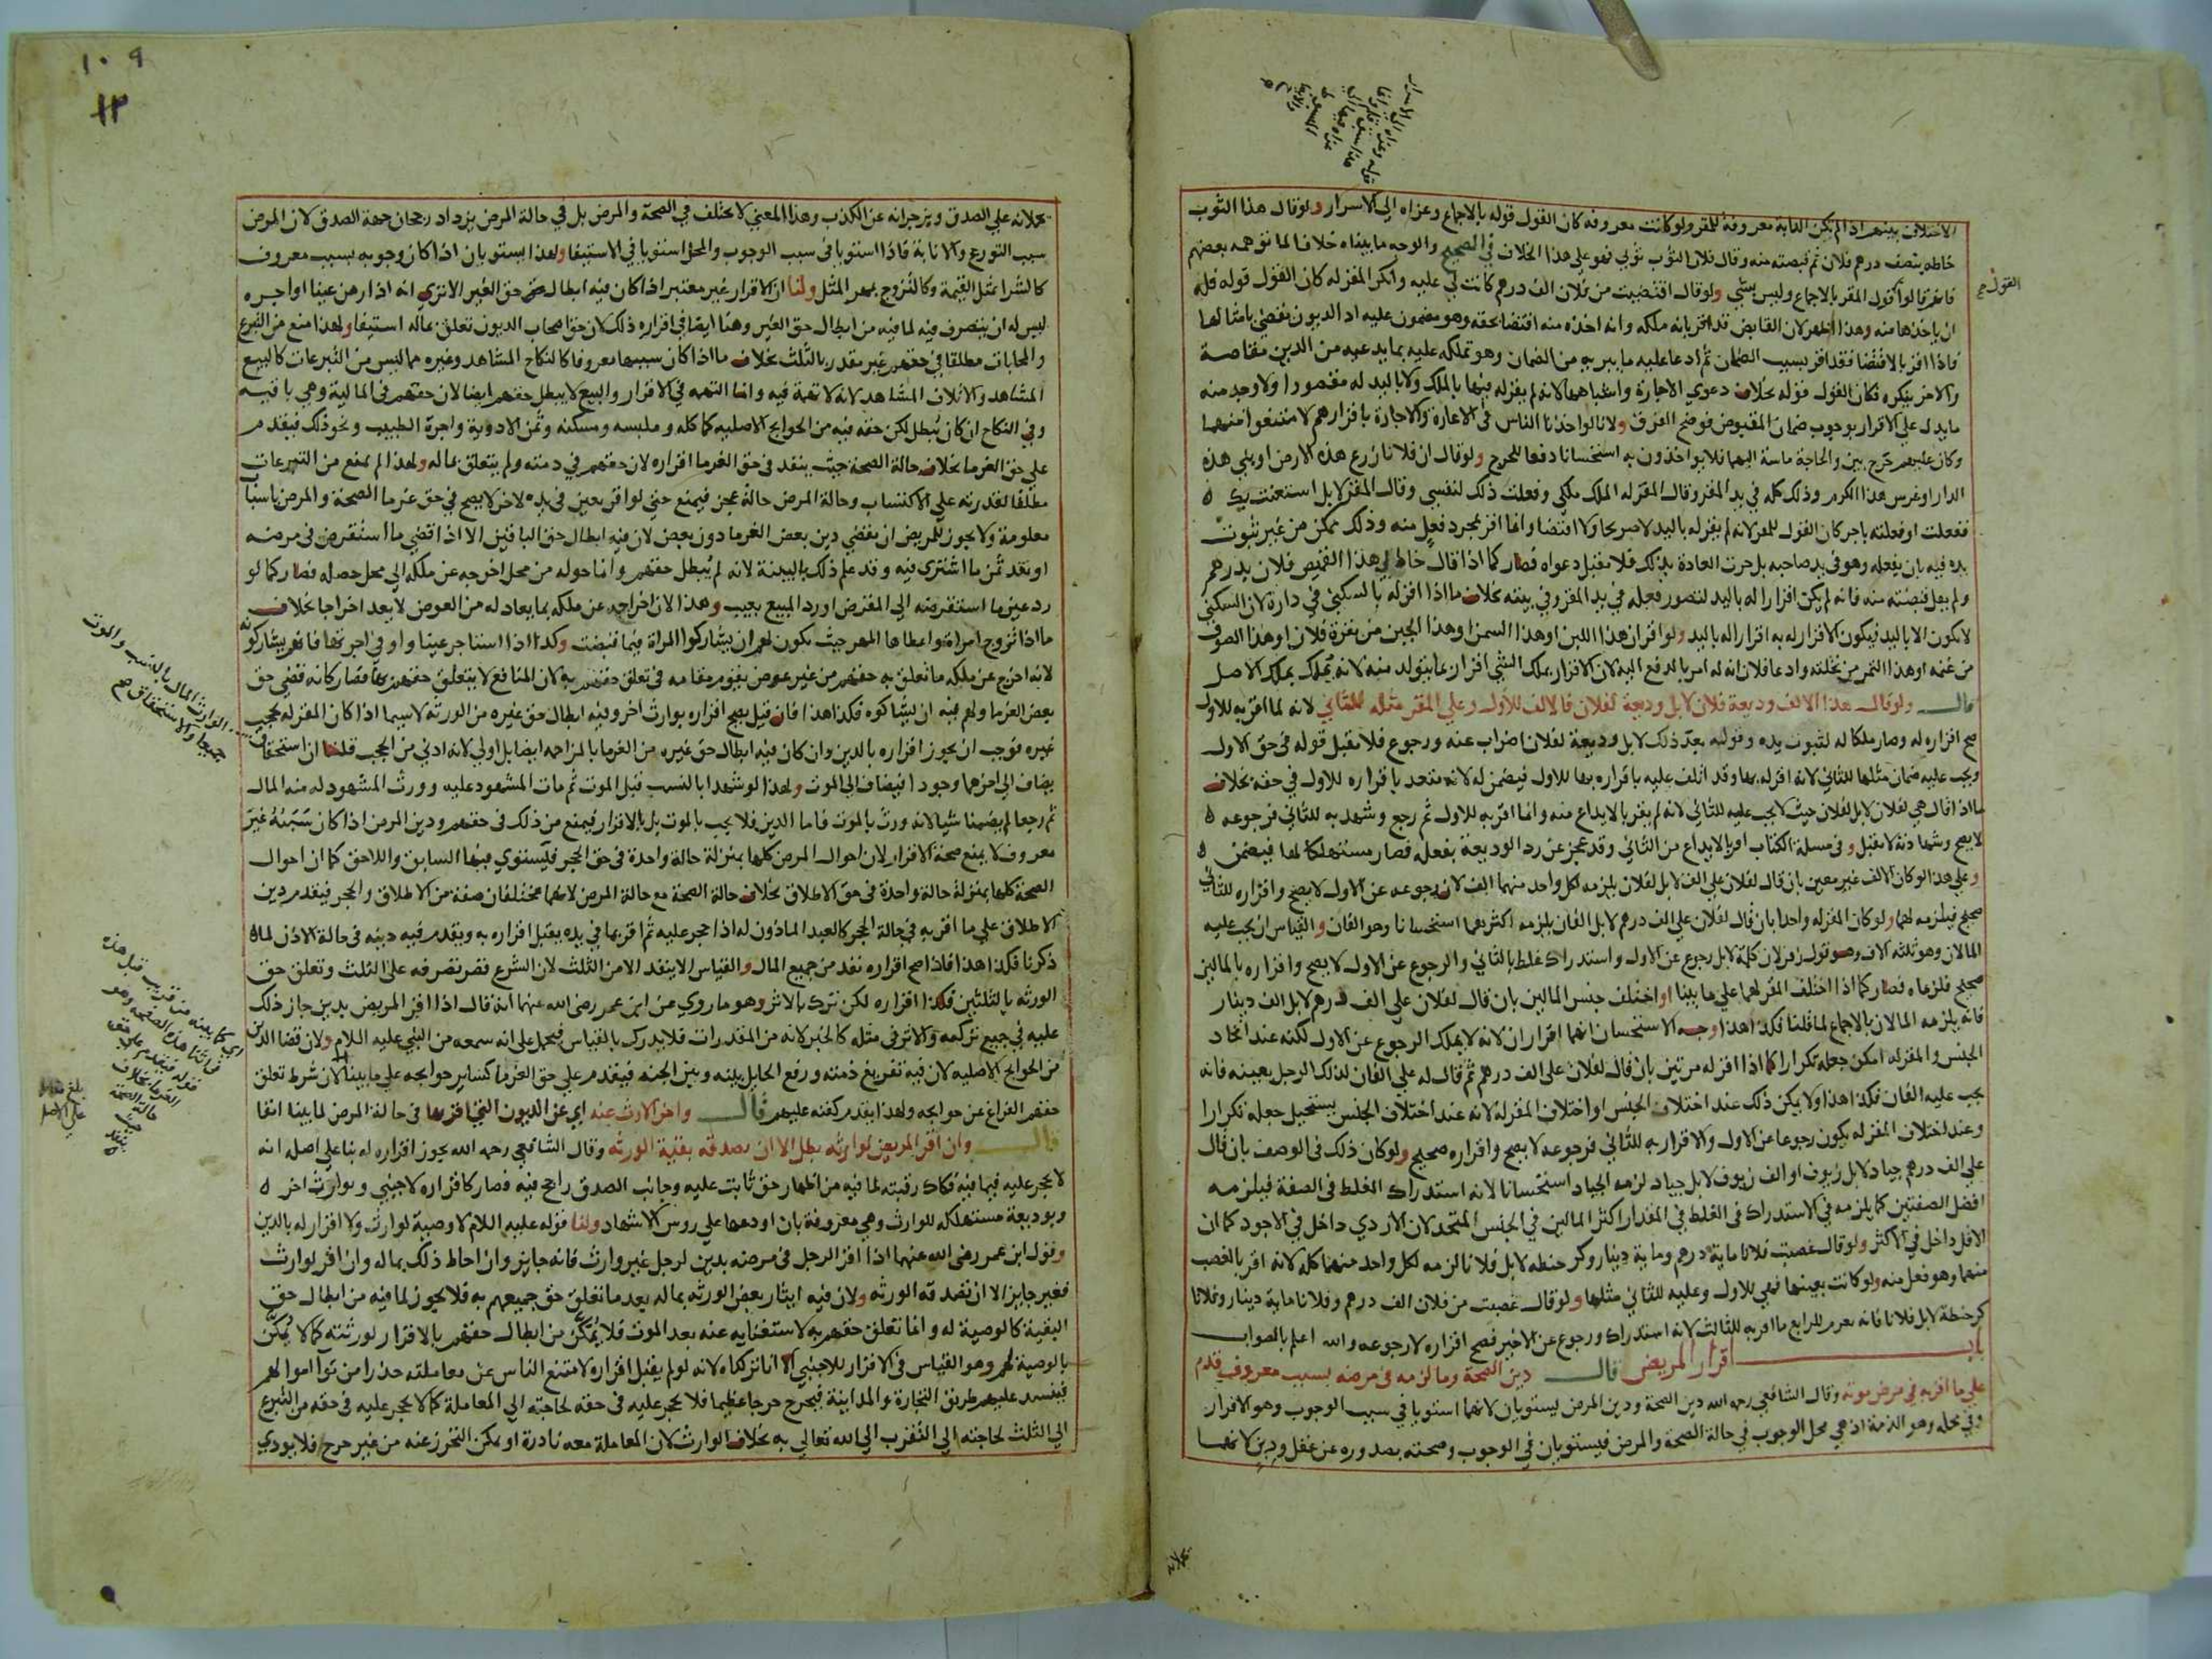 الاختلاف بينهم اذا لم يكن الدابة معروفة للمقر ولو كانت معروفة كان القول قوله بالاجماع وعزاه الى الاسرار ولو قال هذا الثوب
خاطه بنصف درهم فلان ثم قبضته منه وقال فلان الثوب ثوبي فهو على هذا الخلاف في الصحيح والوجه ما بيناه خلافا لما توهمه بعضهم
قالوا القول قول المقر بالاجماع وليس بشي ولو قال اقتضيت من فلان الف درهم كانت لي عليه وانكر المقر له كان القول قوله فله
ان ياخذها منه وهذا اظهر لان القابض قد اقر بانه ملكه وانه اخذه منه اقتضا بحقه وهو مضمون عليه اذ الديون تقضى بامثالها
فاذا اقر بالاقتضا فقد اقر بسبب الضمان ثم ادعا عليه ما يبريه من الضمان وهو تملكه عليه بما يدعيه من الدين مقاصة
والاخر ينكره فكان القول قوله بخلاف دعوي الاجارة واشباهها لانه لم يقر له فيها بالملك ولا باليد له مقصورا ولا وجد منه
ما يدل على الاقرار بوجوب ضمان المقبوض فوضح الفرق ولانا لو اخذنا الناس في الاعارة والاجارة باقرارهم لامتنعوا عنهما
وكان عليهم حرج بين والحاجة ماسة اليهما فلا يواخذون به استحسانا دفعا للحرج ولو قال ان فلانا زرع هذه الارض او بنى هذه
الدار او غرس هذا الكرم وذلك كله في يد المقر وقال المقر له الملك ملكي وفعلت ذلك لنفسي وقال المقر لا بل استعنت بك
ففعلت او فعلته باجر كان القول للمقر لانه لم يقر له باليد لا صريحا ولا اقتضا وانما اقر بمجرد فعل منه وذلك ممكن من غير ثبوت
يده فيه بان يفعله وهو في يد صاحبه بل جرت العادة بذلك فلا تقبل دعواه فصار كما اذا قال خاط لي هذا القميص فلان بدرهم
ولم يقل قبضته منه فانه لم يكن اقرارا له باليد لتصور فعله في يد المقر وفي بيته بخلاف ما اذا اقر له بالسكنى في داره لان السكنى
لا يكون الا باليد فيكون الاقرار له به اقرارا له باليد ولو اقر ان هذا اللبن او هذا السمن او هذا الجبن من بقرة فلان او هذا الصوف
من غنمه او هذا الثمر من نخلته وادعا فلان انه له امر بالدفع اليه لان الاقرار بملك الشي اقرار بما يتولد منه لانه يملك بملك الاصل
قال ولو قال هذا الالف وديعة فلان لا بل وديعة لفلان فالالف للاول وعلى المقر مثله للثاني لانه لما اقر به للاول
صح اقراره له وصار ملكا له لثبوت يده وقوله بعد ذلك لا بل وديعة لفلان اضراب عنه ورجوع فلا تقبل قوله في حق الاول
ويجب عليه ضمان مثلها للثاني لانه اقر له بها وقد اتلف عليه باقراره بها للاول فيضمن له لانه متعد باقراره للاول في حقه بخلاف
ما اذا قال هي لفلان لا بل لفلان حيث لا يجب عليه للثاني لانه لم يقر بالايداع منه وانما اقر به للاول ثم رجع وشهد به للثاني فرجوعه
لا يصح وشهادته لا تقبل وفي مسلة الكتاب اقر بالايداع من الثاني وقد عجز عن رد الوديعة بفعله فصار مستهلكا لها فيضمن
وعلى هذا لو كان الالف غير معين بان قال لفلان علي الف لا بل لفلان يلزمه لكل واحد منهما الف لان رجوعه عن الاول لا يصح واقراره للثاني
صحيح فيلزمه لهما ولو كان المقر له واحدا بان قال لفلان علي الف درهم لا بل الفان يلزمه اكثرهما استحسانا وهو الفان والقياس ان يجب عليه
المالان وهو ثلثة الاف وهو قول زفر لان كلمة لا بل رجوع عن الاول واستدراك غلط بالثاني والرجوع عن الاول لا يصح واقراره بالمالين
صحيح فلزماه فصار كما اذا اختلف المقر لهما على ما بينا او اختلف جنس المالين بان قال لفلان علي الف درهم لا بل الف دينار
فانه يلزمه المالان بالاجماع لما قلنا فكذا هذا وجه الاستحسان انهما اقراران لانه لا يملك الرجوع عن الاول لكنه عند اتحاد
الجنس والمقر له امكن جعله تكرارا كما اذا اقر له مرتين بان قال لفلان علي الف درهم ثم قال له علي الفان لذلك الرجل بعينه فانه
يجب عليه الفان فكذا هذا ولا يمكن ذلك عند اختلاف الجنس او اختلاف المقر له لانه عند اختلاف الجنس يستحيل جعله تكرارا
وعند اختلاف المقر له يكون رجوعا عن الاول والاقرار به للثاني فرجوعه لا يصح واقراره صحيح ولو كان ذلك في الوصف بان قال
علي الف درهم جياد لا بل زيوف او الف زيوف لا بل جياد لزمه الجياد استحسانا لانه استدراك الغلط في الصفة فيلزمه
افضل الصفتين كما يلزمه في الاستدراك في الغلط في المقدار اكثر المالين في الجنس المتحد لان الاردي داخل في الاجود كما ان
الاقل داخل في الاكثر ولو قال غصبت فلانا ماية درهم وماية دينار وكر حنطه لا بل فلانا لزمه لكل واحد منهما كله لانه اقر بالغصب
منهما وهو فعل منه ولو كانت بعينها فهي للاول وعليه للثاني مثلها ولو قال غصبت من فلان الف درهم وفلانا ماية دينار وفلانا
كر حنطة لا بل فلانا فانه يغرم للرابع ما اقر به للثالث لانه استدراك ورجوع عن الاخير فصح اقراره لا رجوعه والله اعلم بالصواب
باب اقرار المريض قال دين الصحة وما لزمه في مرضه بسبب معروف قدم
على ما اقر به في مرض موته وقال الشافعي رحمه الله دين الصحة ودين المرض يستويان لانهما استويا في سبب الوجوب وهو الاقرار
وفي محله وهو الذمة اذ هي محل الوجوب في حالة الصحة والمرض فيستويان في الوجوب وصحته بصدوره عن عقل ودين لانهما
القول صح
يحملانه
١٠٩
١٢
يحملانه على الصدق ويزجرانه عن الكذب وهذا المعنى لا يختلف في الصحة والمرض بل في حالة المرض يزداد رجحان جهة الصدق لان المرض
سبب التورع والانابة فاذا استويا في سبب الوجوب والمحل استويا في الاستيفا ولهذا يستويان اذا كان وجوبه بسبب معروف
كالشرا بمثل القيمة وكالتزوج بمهر المثل ولنا ان الاقرار غير معتبر اذا كان فيه ابطال حق الغير الا ترى انه اذا رهن عينا او اجره
ليس له ان يتصرف فيه لما فيه من ابطال حق الغير وهنا ايضا في اقراره ذلك لان حق اصحاب الديون تعلق بماله استيفا ولهذا منع من التبرع
والمحابات مطلقا في حقهم غير مقدر بالثلث بخلاف ما اذا كان سببها معروفا كالنكاح المشاهد وغيره مما ليس من التبرعات كالبيع
المشاهد والاتلاف المشاهد لانه لا تهمة فيه وانما التهمة في الاقرار والبيع لا يبطل حقهم ايضا لان حقهم في المالية وهي باقية
وفي النكاح ان كان يبطل لكن حقه فيه من الحوايج الاصليه كماكله وملبسه ومسكنه وثمن الادوية واجرة الطبيب ونحو ذلك فيقدم
على حق الغرما بخلاف حالة الصحة حيث ينفذ في حق الغرما اقراره لان حقهم في ذمته ولم يتعلق بماله ولهذا لم يمنع من التبرعات
مطلقا لقدرته على الاكتساب وحالة المرض حالة عجز فيمنع حتى لو اقر بعين في يده لاخر لا يصح في حق غرما الصحة والمرض باسباب
معلومة ولا يجوز للمريض ان يقضي دين بعض الغرما دون بعض لان فيه ابطال حق الباقين الا اذا قضى ما استقرض في مرضه
او نقد ثمن ما اشترى فيه وقد علم ذلك بالبينة لانه لم يبطل حقهم وانما حوله من محل اخرجه عن ملكه الى محل حصله فصار كما لو
رد عين ما استقرضه الى المقرض او رد المبيع بعيب وهذا لان اخراجه عن ملكه بما يعادله من العوض لا يعد اخراجا بخلاف
ما اذا تزوج امراة واعطاها المهر حيث يكون لهم ان يشاركوا المراة فيما قبضت وكذا اذا استاجر عينا واوفى اجرتها فانهم يشاركونه
لانه اخرج عن ملكه ما تعلق به حقهم من غير عوض يقوم مقامه في تعلق حقهم به لان المنافع لا يتعلق حقهم بها فصار كانه قضى حق
بعض الغرما ولهم فيه ان يشاركوه فكذا هذا فان قيل يصح اقراره بوارث اخر وفيه ابطال حق غيره من الورثه لا سيما اذا كان المقر له يحجب
غيره فوجب ان يجوز اقراره بالدين وان كان فيه ابطال حق غيره من الغرما بالمزاحمه ايضا بل اولى لانه ادنى من الحجب قلنا ان استحقاق
يضاف الى اخرهما وجودا فيضاف الى الموت ولهذا لو شهدا بالنسب قبل الموت ثم مات المشهود عليه وورث المشهود له منه المال
ثم رجعا لم يضمنا شيا لانه ورث بالموت فاما الدين فلا يجب بالموت بل بالاقرار فيمنع من ذلك في حقهم ودين المرض اذا كان سببه غير
معروف لا يمنع صحة الاقرار لان احوال المرض كلها بمنزلة حالة واحدة في حق الحجر فيستوي فيها السابق واللاحق كما ان احوال
الصحة كلها بمنزلة حالة واحدة في حق الاطلاق بخلاف حالة الصحة مع حالة المرض لانهما مختلفان صفة من الاطلاق والحجر فيقدم دين
الاطلاق على ما اقر به في حالة الحجر كالعبد الماذون له اذا حجر عليه ثم اقر بما في يده يقبل اقراره به ويقدم فيه دينه في حالة الاذن لما
ذكرنا فكذا هذا فاذا صح اقراره نفذ من جميع المال والقياس الا ينفذ الا من الثلث لان الشرع قصر تصرفه على الثلث وتعلق حق
الورثه بالثلثين فكذا اقراره لكن ترك بالاثر وهو ما روي من ابن عمر رضي الله عنهما انه قال اذا اقر المريض بدين جاز ذلك
عليه في جميع تركته والاثر في مثله كالخبر لانه من المقدرات فلا يدرك بالقياس فيحمل على انه سمعه من النبي عليه السلام ولان قضا الدين
من الحوايج الاصليه لان فيه تفريغ ذمته ورفع الحايل بينه وبين الجنه فيقدم على حق الغرما كساير حوايجه على ما بينا لان شرط تعلق
حقهم الفراغ عن حوايجه ولهذا يقدم كفنه عليهم قال واخر الارث عنه اي عن الديون التي اقر بها في حالة المرض لما بينا انفا
قال وان اقر المريض لوارثه بطل الا ان يصدقه بقية الورثه وقال الشافعي رحمه الله يجوز اقراره له بنا على اصله انه
لا يحجر عليه فيما فيه فكاك رقبته لما فيه من اظهار حق ثابت عليه وجانب الصدق راجح فيه فصار كاقراره لاجنبي وبوارث اخر
وبوديعة مستهلكه للوارث وهي معروفة بان اودعها على روس الاشهاد ولنا قوله عليه السلام لا وصية لوارث ولا اقرار له بالدين
وقول ابن عمر رضي الله عنهما اذا اقر الرجل في مرضه بدين لرجل غير وارث فانه جايز وان احاط ذلك بماله وان اقر لوارث
فغير جايز الا ان تصدقه الورثه ولان فيه ايثار بعض الورثه بماله بعد ما تعلق حق جميعهم به فلا يجوز لما فيه من ابطال حق
البقية كالوصية له وانما تعلق حقهم به لاستغنايه عنه بعد الموت فلا يمكن من ابطال حقهم بالاقرار لورثته كما لا يمكن
بالوصية لهم وهو القياس في الاقرار للاجنبي الا انا تركناه لانه لو لم يقبل اقراره لامتنع الناس عن معاملته حذرا من توا اموالهم
فينسد عليهم طريق التجارة والمداينة فيحرج حرجا عظيما فلا يحجر عليه في حقه لحاجته الى المعاملة كما لا يحجر عليه في حقه من التبرع
الى الثلث لحاجته الى التقرب الى الله تعالى به بخلاف الوارث لان المعاملة معه نادرة او يمكن التحرز عنه من غير حرج فلا يودي
الوارث المال بالنسب والموت
جميعا والاستحقاق صح